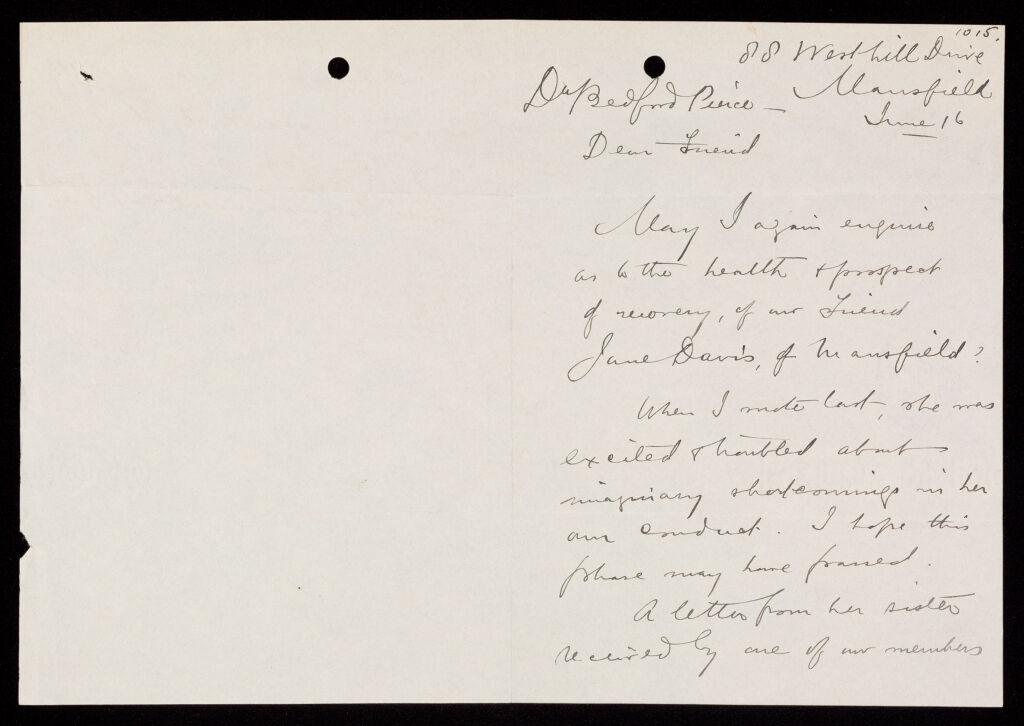 1015.
88 Westhill Drive
Mansfield
June 16
Dr Bedford Pierce –
Dear Friend
May I again enquire
as to the health & prospect
of recovery, of our Friend
Jane Davis, of Mansfield?
When I wrote last, she was
excited & troubled about
imaginary shortcomings in her
own conduct. I hope this
phase may have passed.
A letter from her sister
received by one of our members